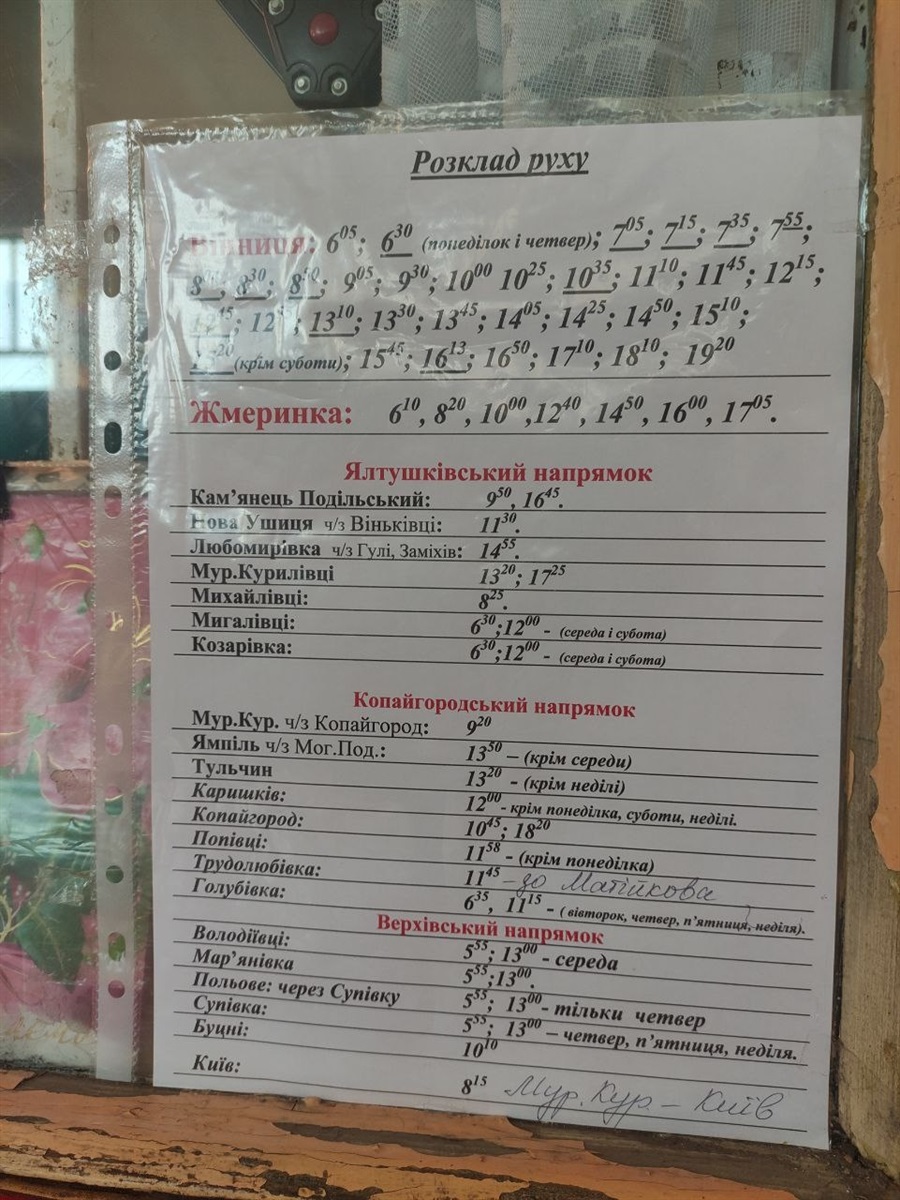 Розклад руху
Вінниця: 6⁰⁵; 6³⁰ (понеділок і четвер); 7⁰⁵; 7¹⁵; 7³⁵; 7⁵⁵;
8³⁰; 8⁵⁰; 9⁰⁵; 9³⁰; 10⁰⁰ 10²⁵; 10³⁵; 11¹⁰; 11⁴⁵; 12¹⁵;
13¹⁰; 13³⁰; 13⁴⁵; 14⁰⁵; 14²⁵; 14⁵⁰; 15¹⁰;
(крім суботи); 15⁴⁵; 16¹³; 16⁵⁰; 17¹⁰; 18¹⁰; 19²⁰
Жмеринка: 6¹⁰, 8²⁰, 10⁰⁰,12⁴⁰, 14⁵⁰, 16⁰⁰, 17⁰⁵.
Ялтушківський напрямок
Кам’янець Подільський: 9⁵⁰, 16⁴⁵.
Нова Ушиця ч/з Віньківці: 11³⁰.
Любомирівка ч/з Гулі, Заміхів: 14⁵⁵.
Мур.Курилівці 13²⁰; 17²⁵
Михайлівці: 8²⁵.
Мигалівці: 6³⁰;12⁰⁰ - (середа і субота)
Козарівка: 6³⁰;12⁰⁰ - (середа і субота)
Копайгородський напрямок
Мур.Кур. ч/з Копайгород: 9²⁰
Ямпіль ч/з Мог.Под.: 13⁵⁰ – (крім середи)
Тульчин 13²⁰ - (крім неділі)
Каришків: 12⁰⁰ - крім понеділка, суботи, неділі.
Копайгород: 10⁴⁵; 18²⁰
Попівці: 11⁵⁸ - (крім понеділка)
Трудолюбівка: 11⁴⁵ - до Матійкова
Голубівка: 6³⁵, 11¹⁵ - ( вівторок, четвер, п’ятниця, неділя).
Верхівський напрямок
Володіївці: 5⁵⁵; 13⁰⁰ - середа
Мар’янівка 5⁵⁵;13⁰⁰.
Польове: через Супівку 5⁵⁵; 13⁰⁰- тільки четвер
Супівка: 5⁵⁵; 13⁰⁰ – четвер, п’ятниця, неділя.
Буцні: 10¹⁰
Київ: 8¹⁵ Мур. Кур. – Київ